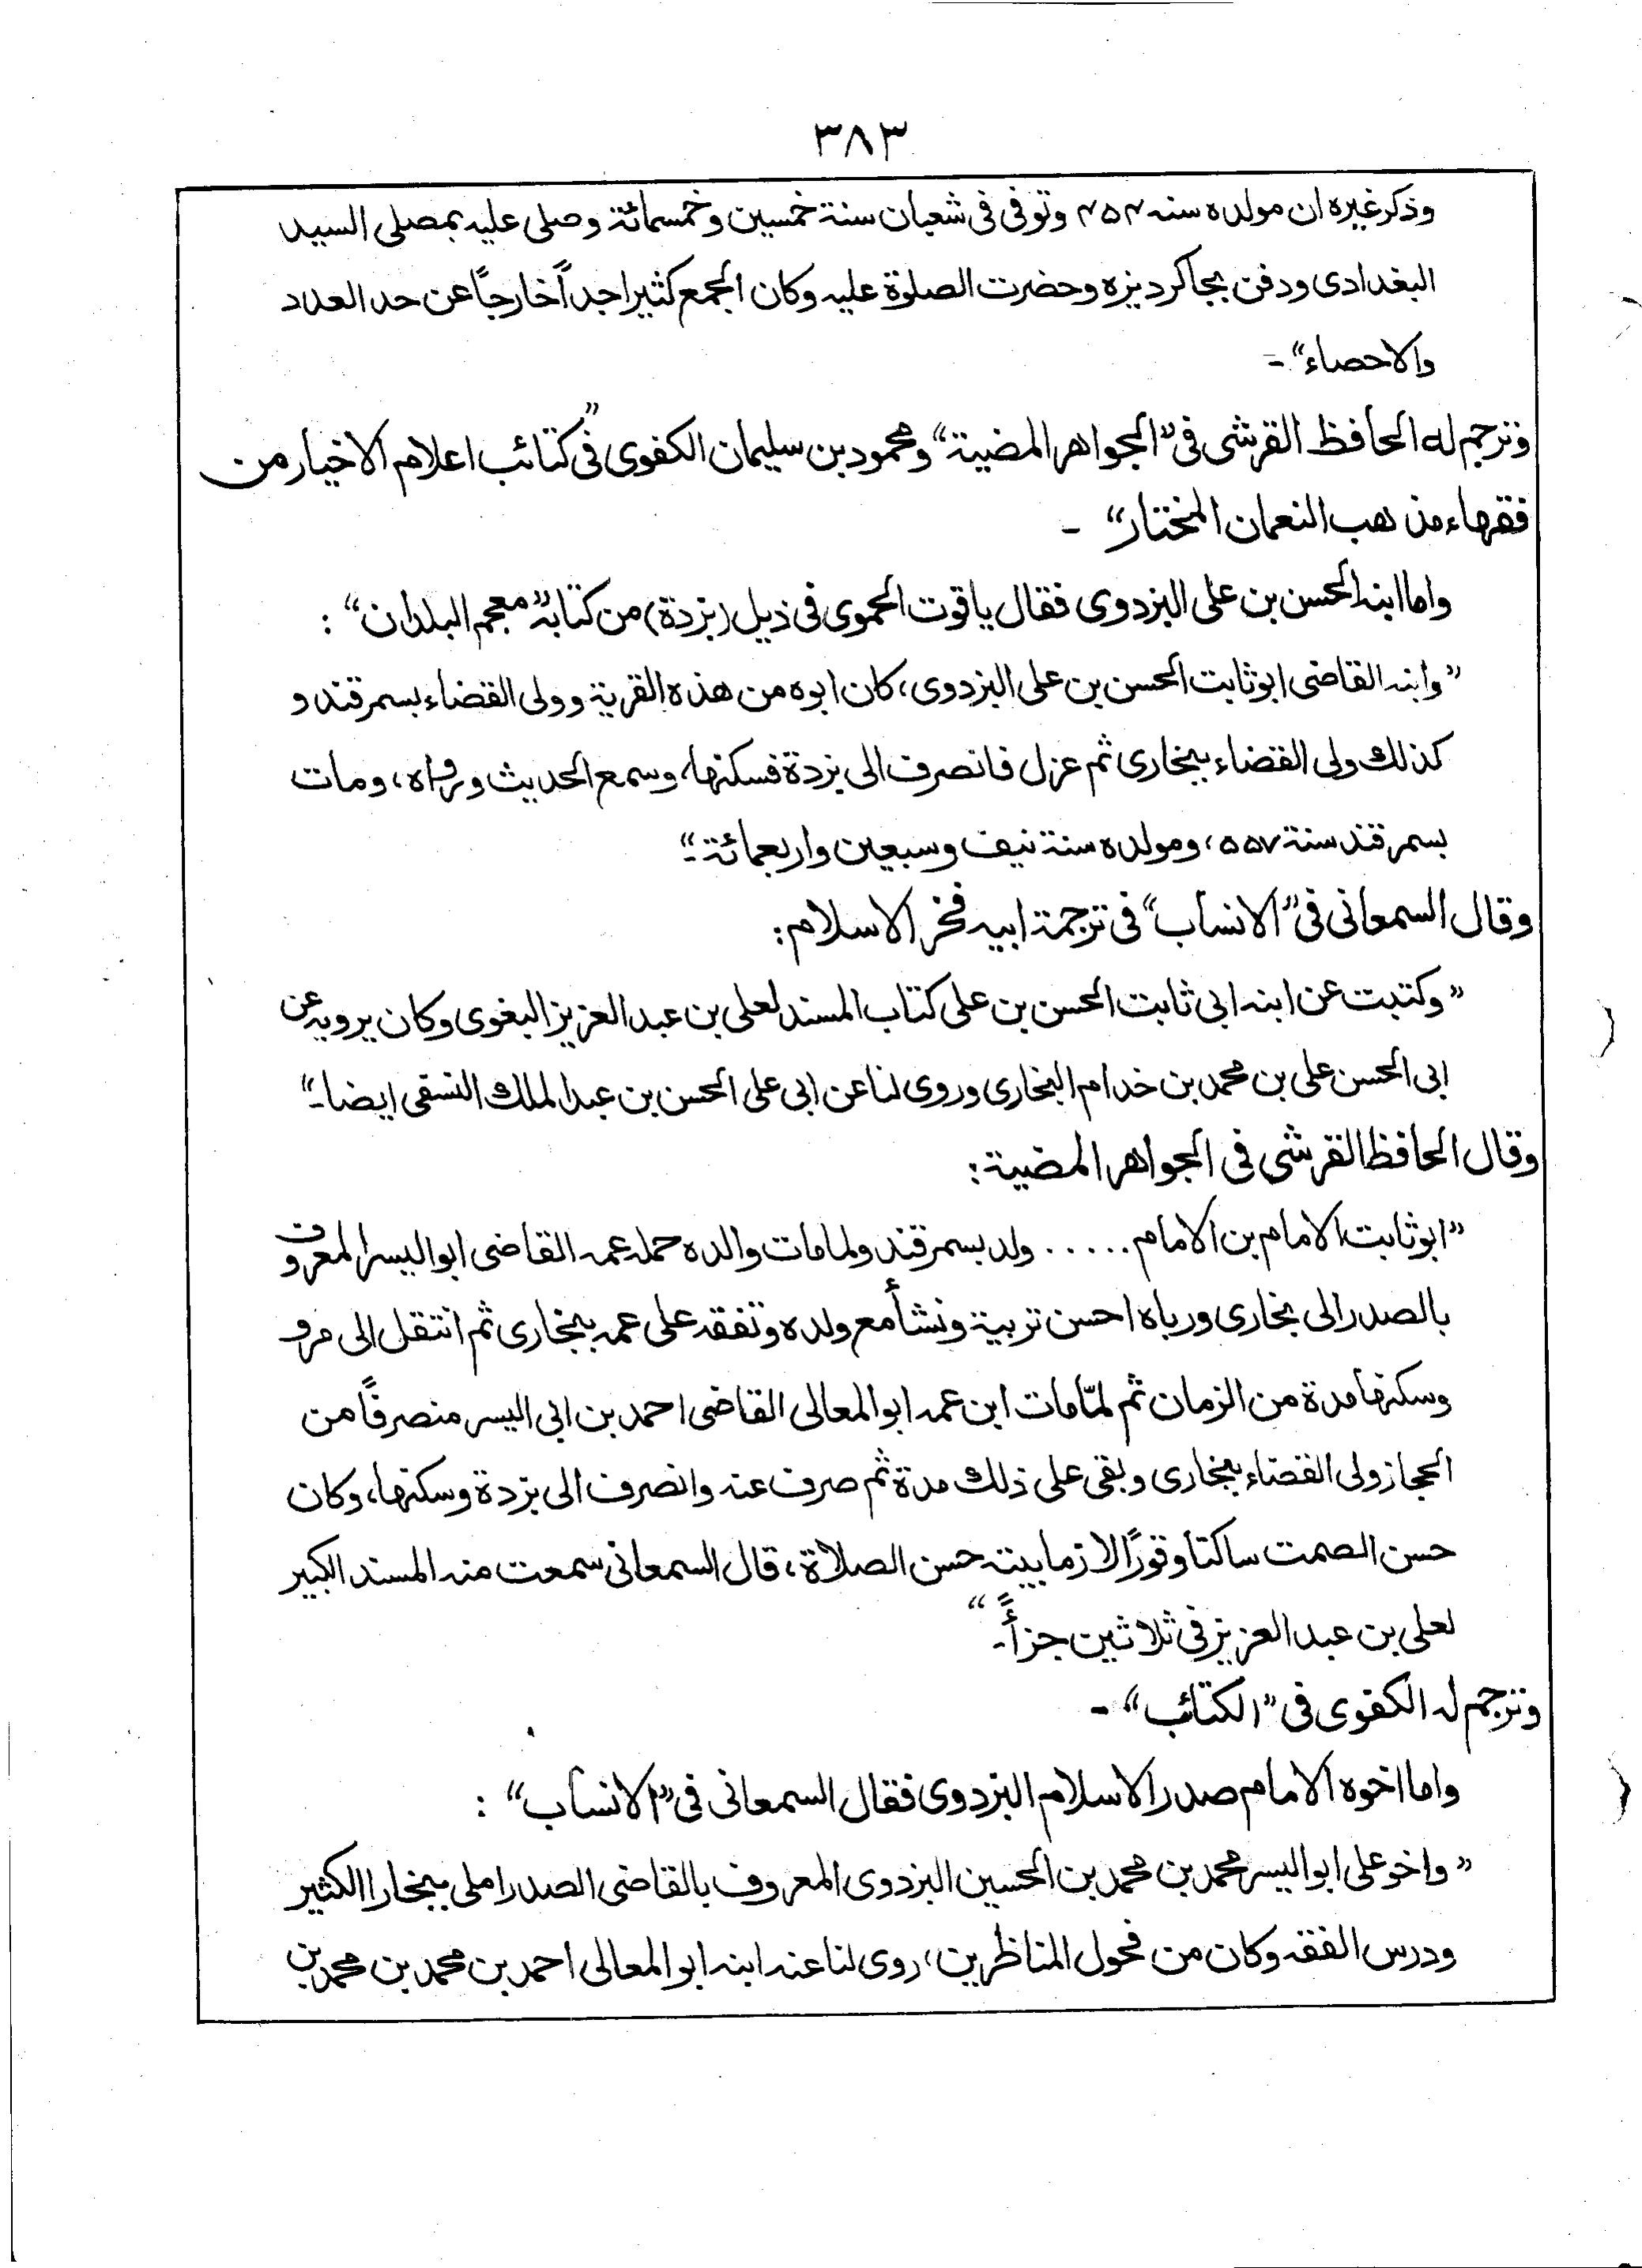 ٣٨٣
وذكر غيره ان مولده سنه ٤٥٤ وتوفى فى شعبان سنة خمسين وخمسمائة وصلى عليه بمصلى السيد
البغدادى ودفن بجاكرديزه وحضرت الصلوة عليه وكان الجمع كثيرا جداً خارجاً عن حد العدد
والاحصاء“ -
وترجم له الحافظ القرشى فى ”الجواهر المضية“ ومحمود بن سليمان الكفوى فى ”كتائب اعلام الاخيار من
فقهاء مذهب النعمان المختار“ -
واما ابنه الحسن بن على البزدوى فقال ياقوت الحموى فى ذيل (بزدة) من كتابه ”معجم البلدان“ :
”وابنه القاضى ابو ثابت الحسن بن على البزدوى، كان ابوه من هذه القرية وولى القضاء بسمرقند و
كذلك ولى القضاء ببخارى ثم عزل فانصرف الى بزدة فسكنها، وسمع الحديث ورواه، ومات
بسمرقند سنة ٥٥٧، ومولده سنة نيف وسبعين واربعمائة-“
وقال السمعانى فى ”الانساب“ فى ترجمة ابيه فخر الاسلام:
”وكتبت عن ابنه ابى ثابت الحسن بن على كتاب المسند لعلى بن عبد العزيز البغوى وكان يرويه عن
ابى الحسن على بن محمد بن خدام البخارى وروى لنا عن ابى على الحسن بن عبد الملك النسفى ايضا-“
وقال الحافظ القرشى فى الجواهر المضية:
”ابو ثابت الامام بن الامام..... ولد بسمرقند ولما مات والده حمله عمه القاضى ابو اليسر المعروف
بالصدر الى بخارى ورباه احسن تربية ونشأ مع ولده وتفقه على عمه ببخارى ثم انتقل الى مرو
وسكنها مدة من الزمان ثم لمّا مات ابن عمه ابو المعالى القاضى احمد بن ابى اليسر منصرفاً من
الحجاز ولى القضاء ببخارى وبقى على ذلك مدة ثم صرف عنه وانصرف الى بزدة وسكنها، وكان
حسن الصمت ساكتا وقورًا لازما بيته حسن الصلاة، قال السمعانى سمعت منه المسند الكبير
لعلى بن عبد العزيز فى ثلاثين جزأً-“
وترجم له الكفوى فى ”الكتائب“ -
واما اخوه الامام صدر الاسلام البزدوى فقال السمعانى فى ”الانساب“ :
”واخو على ابو اليسر محمد بن محمد بن الحسين البزدوى المعروف بالقاضى الصدر املى ببخارا الكثير
ودرس الفقه وكان من فحول المناظرين، روى لنا عنه ابنه ابو المعالى احمد بن محمد بن محمد بن